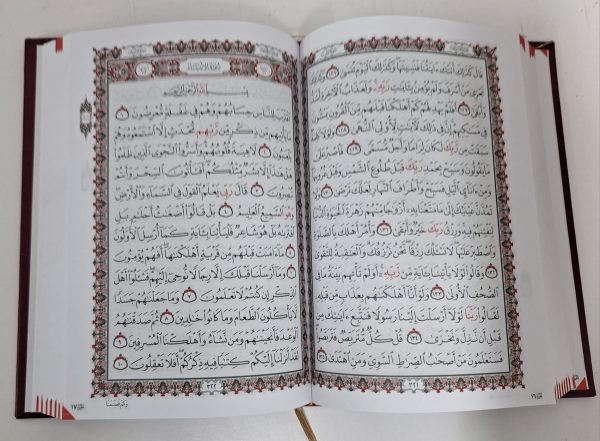 قَالَ كَذَٰلِكَ أَتَتْكَ ءَايَٰتُنَا فَنَسِيتَهَا وَكَذَٰلِكَ ٱلْيَوْمَ تُنسَىٰ ١٢٦
وَكَذَٰلِكَ نَجْزِى مَنْ أَسْرَفَ وَلَمْ يُؤْمِنۢ بِـَٔايَٰتِ رَبِّهِۦ وَلَعَذَابُ ٱلْءَاخِرَةِ أَشَدُّ
وَأَبْقَىٰٓ ١٢٧ أَفَلَمْ يَهْدِ لَهُمْ كَمْ أَهْلَكْنَا قَبْلَهُم مِّنَ ٱلْقُرُونِ يَمْشُونَ
فِى مَسَٰكِنِهِمْ إِنَّ فِى ذَٰلِكَ لَءَايَٰتٍ لِّأُو۟لِى ٱلنُّهَىٰ ١٢٨ وَلَوْلَا كَلِمَةٌ
سَبَقَتْ مِن رَّبِّكَ لَكَانَ لِزَامًا وَأَجَلٌ مُّسَمًّى ١٢٩ فَٱصْبِرْ عَلَىٰ
مَا يَقُولُونَ وَسَبِّحْ بِحَمْدِ رَبِّكَ قَبْلَ طُلُوعِ ٱلشَّمْسِ وَقَبْلَ غُرُوبِهَا
وَمِنْ ءَانَآئِ ٱلَّيْلِ فَسَبِّحْ وَأَطْرَافَ ٱلنَّهَارِ لَعَلَّكَ تَرْضَىٰ ١٣٠ وَلَا
تَمُدَّنَّ عَيْنَيْكَ إِلَىٰ مَا مَتَّعْنَا بِهِۦٓ أَزْوَٰجًا مِّنْهُمْ زَهْرَةَ ٱلْحَيَوٰةِ ٱلدُّنْيَا
لِنَفْتِنَهُمْ فِيهِ وَرِزْقُ رَبِّكَ خَيْرٌ وَأَبْقَىٰ ١٣١ وَأْمُرْ أَهْلَكَ بِٱلصَّلَوٰةِ
وَٱصْطَبِرْ عَلَيْهَا لَا نَسْـَٔلُكَ رِزْقًا نَّحْنُ نَرْزُقُكَ وَٱلْعَٰقِبَةُ لِلتَّقْوَىٰ ١٣٢
وَقَالُوا۟ لَوْلَا يَأْتِينَا بِـَٔايَةٍ مِّن رَّبِّهِۦٓ أَوَلَمْ تَأْتِهِم بَيِّنَةُ مَا فِى
ٱلصُّحُفِ ٱلْأُولَىٰ ١٣٣ وَلَوْ أَنَّآ أَهْلَكْنَٰهُم بِعَذَابٍ مِّن قَبْلِهِۦ
لَقَالُوا۟ رَبَّنَا لَوْلَآ أَرْسَلْتَ إِلَيْنَا رَسُولًا فَنَتَّبِعَ ءَايَٰتِكَ مِن
قَبْلِ أَن نَّذِلَّ وَنَخْزَىٰ ١٣٤ قُلْ كُلٌّ مُّتَرَبِّصٌ فَتَرَبَّصُوا۟
فَسَتَعْلَمُونَ مَنْ أَصْحَٰبُ ٱلصِّرَٰطِ ٱلسَّوِىِّ وَمَنِ ٱهْتَدَىٰ ١٣٥
٣٢١
سُورَةُ الأَنبِيَاءِ
بِسْمِ ٱللَّهِ ٱلرَّحْمَٰنِ ٱلرَّحِيمِ
ٱقْتَرَبَ لِلنَّاسِ حِسَابُهُمْ وَهُمْ فِى غَفْلَةٍ مُّعْرِضُونَ ١
مَا يَأْتِيهِم مِّن ذِكْرٍ مِّن رَّبِّهِم مُّحْدَثٍ إِلَّا ٱسْتَمَعُوهُ وَهُمْ
يَلْعَبُونَ ٢ لَاهِيَةً قُلُوبُهُمْ وَأَسَرُّوا۟ ٱلنَّجْوَى ٱلَّذِينَ ظَلَمُوا۟
هَلْ هَٰذَآ إِلَّا بَشَرٌ مِّثْلُكُمْ أَفَتَأْتُونَ ٱلسِّحْرَ وَأَنتُمْ
تُبْصِرُونَ ٣ قَالَ رَبِّى يَعْلَمُ ٱلْقَوْلَ فِى ٱلسَّمَآءِ وَٱلْأَرْضِ
وَهُوَ ٱلسَّمِيعُ ٱلْعَلِيمُ ٤ بَلْ قَالُوٓا۟ أَضْغَٰثُ أَحْلَٰمٍۭ بَلِ
ٱفْتَرَىٰهُ بَلْ هُوَ شَاعِرٌ فَلْيَأْتِنَا بِـَٔايَةٍ كَمَآ أُرْسِلَ ٱلْأَوَّلُونَ
٥ مَآ ءَامَنَتْ قَبْلَهُم مِّن قَرْيَةٍ أَهْلَكْنَٰهَآ أَفَهُمْ يُؤْمِنُونَ
٦ وَمَآ أَرْسَلْنَا قَبْلَكَ إِلَّا رِجَالًا نُّوحِىٓ إِلَيْهِمْ فَسْـَٔلُوٓا۟ أَهْلَ
ٱلذِّكْرِ إِن كُنتُمْ لَا تَعْلَمُونَ ٧ وَمَا جَعَلْنَٰهُمْ جَسَدًا
لَّا يَأْكُلُونَ ٱلطَّعَامَ وَمَا كَانُوا۟ خَٰلِدِينَ ٨ ثُمَّ صَدَقْنَٰهُمُ
ٱلْوَعْدَ فَأَنجَيْنَٰهُمْ وَمَن نَّشَآءُ وَأَهْلَكْنَا ٱلْمُسْرِفِينَ ٩
لَقَدْ أَنزَلْنَآ إِلَيْكُمْ كِتَٰبًا فِيهِ ذِكْرُكُمْ أَفَلَا تَعْقِلُونَ ١٠
٣٢٢